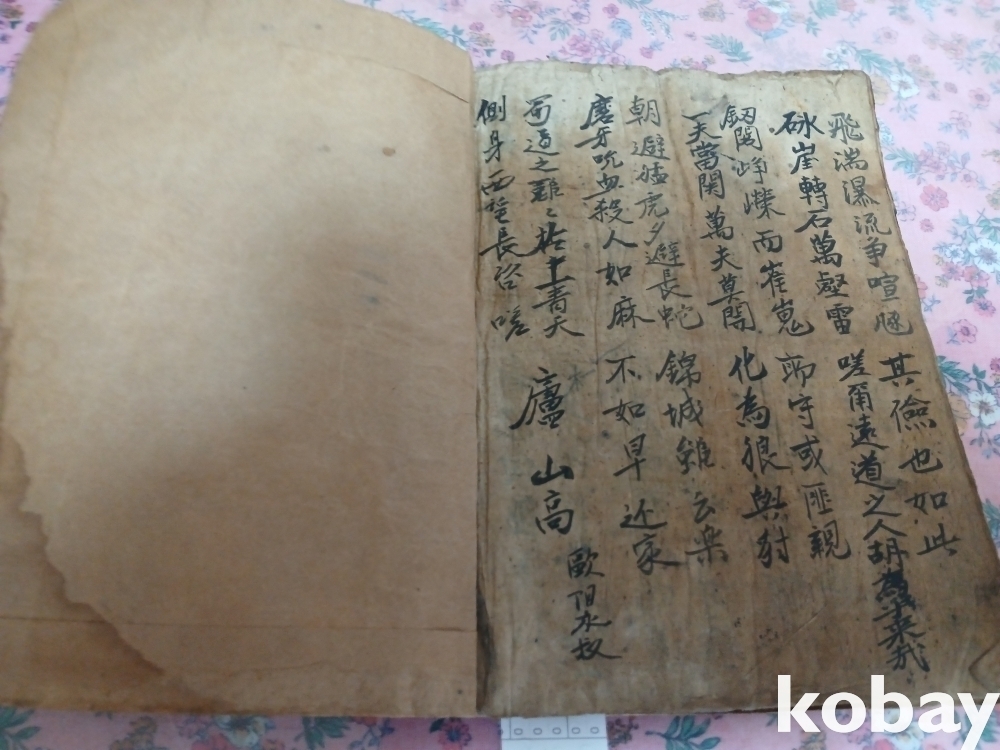 飛湍瀑流争喧豗
砯崖轉石萬壑雷
其儉也如此
嗟爾遠道之人胡為乎来哉
釼閣崢嶸而崔嵬
一夫當関萬夫莫開
所守或匪親
化為狼與豺
朝避猛虎夕避長蛇
磨牙吮血殺人如麻
錦城雖云楽
不如早还家
蜀道之難〻扵上青天
側身西望長咨嗟
廬山高
歐阳永叔
kobay